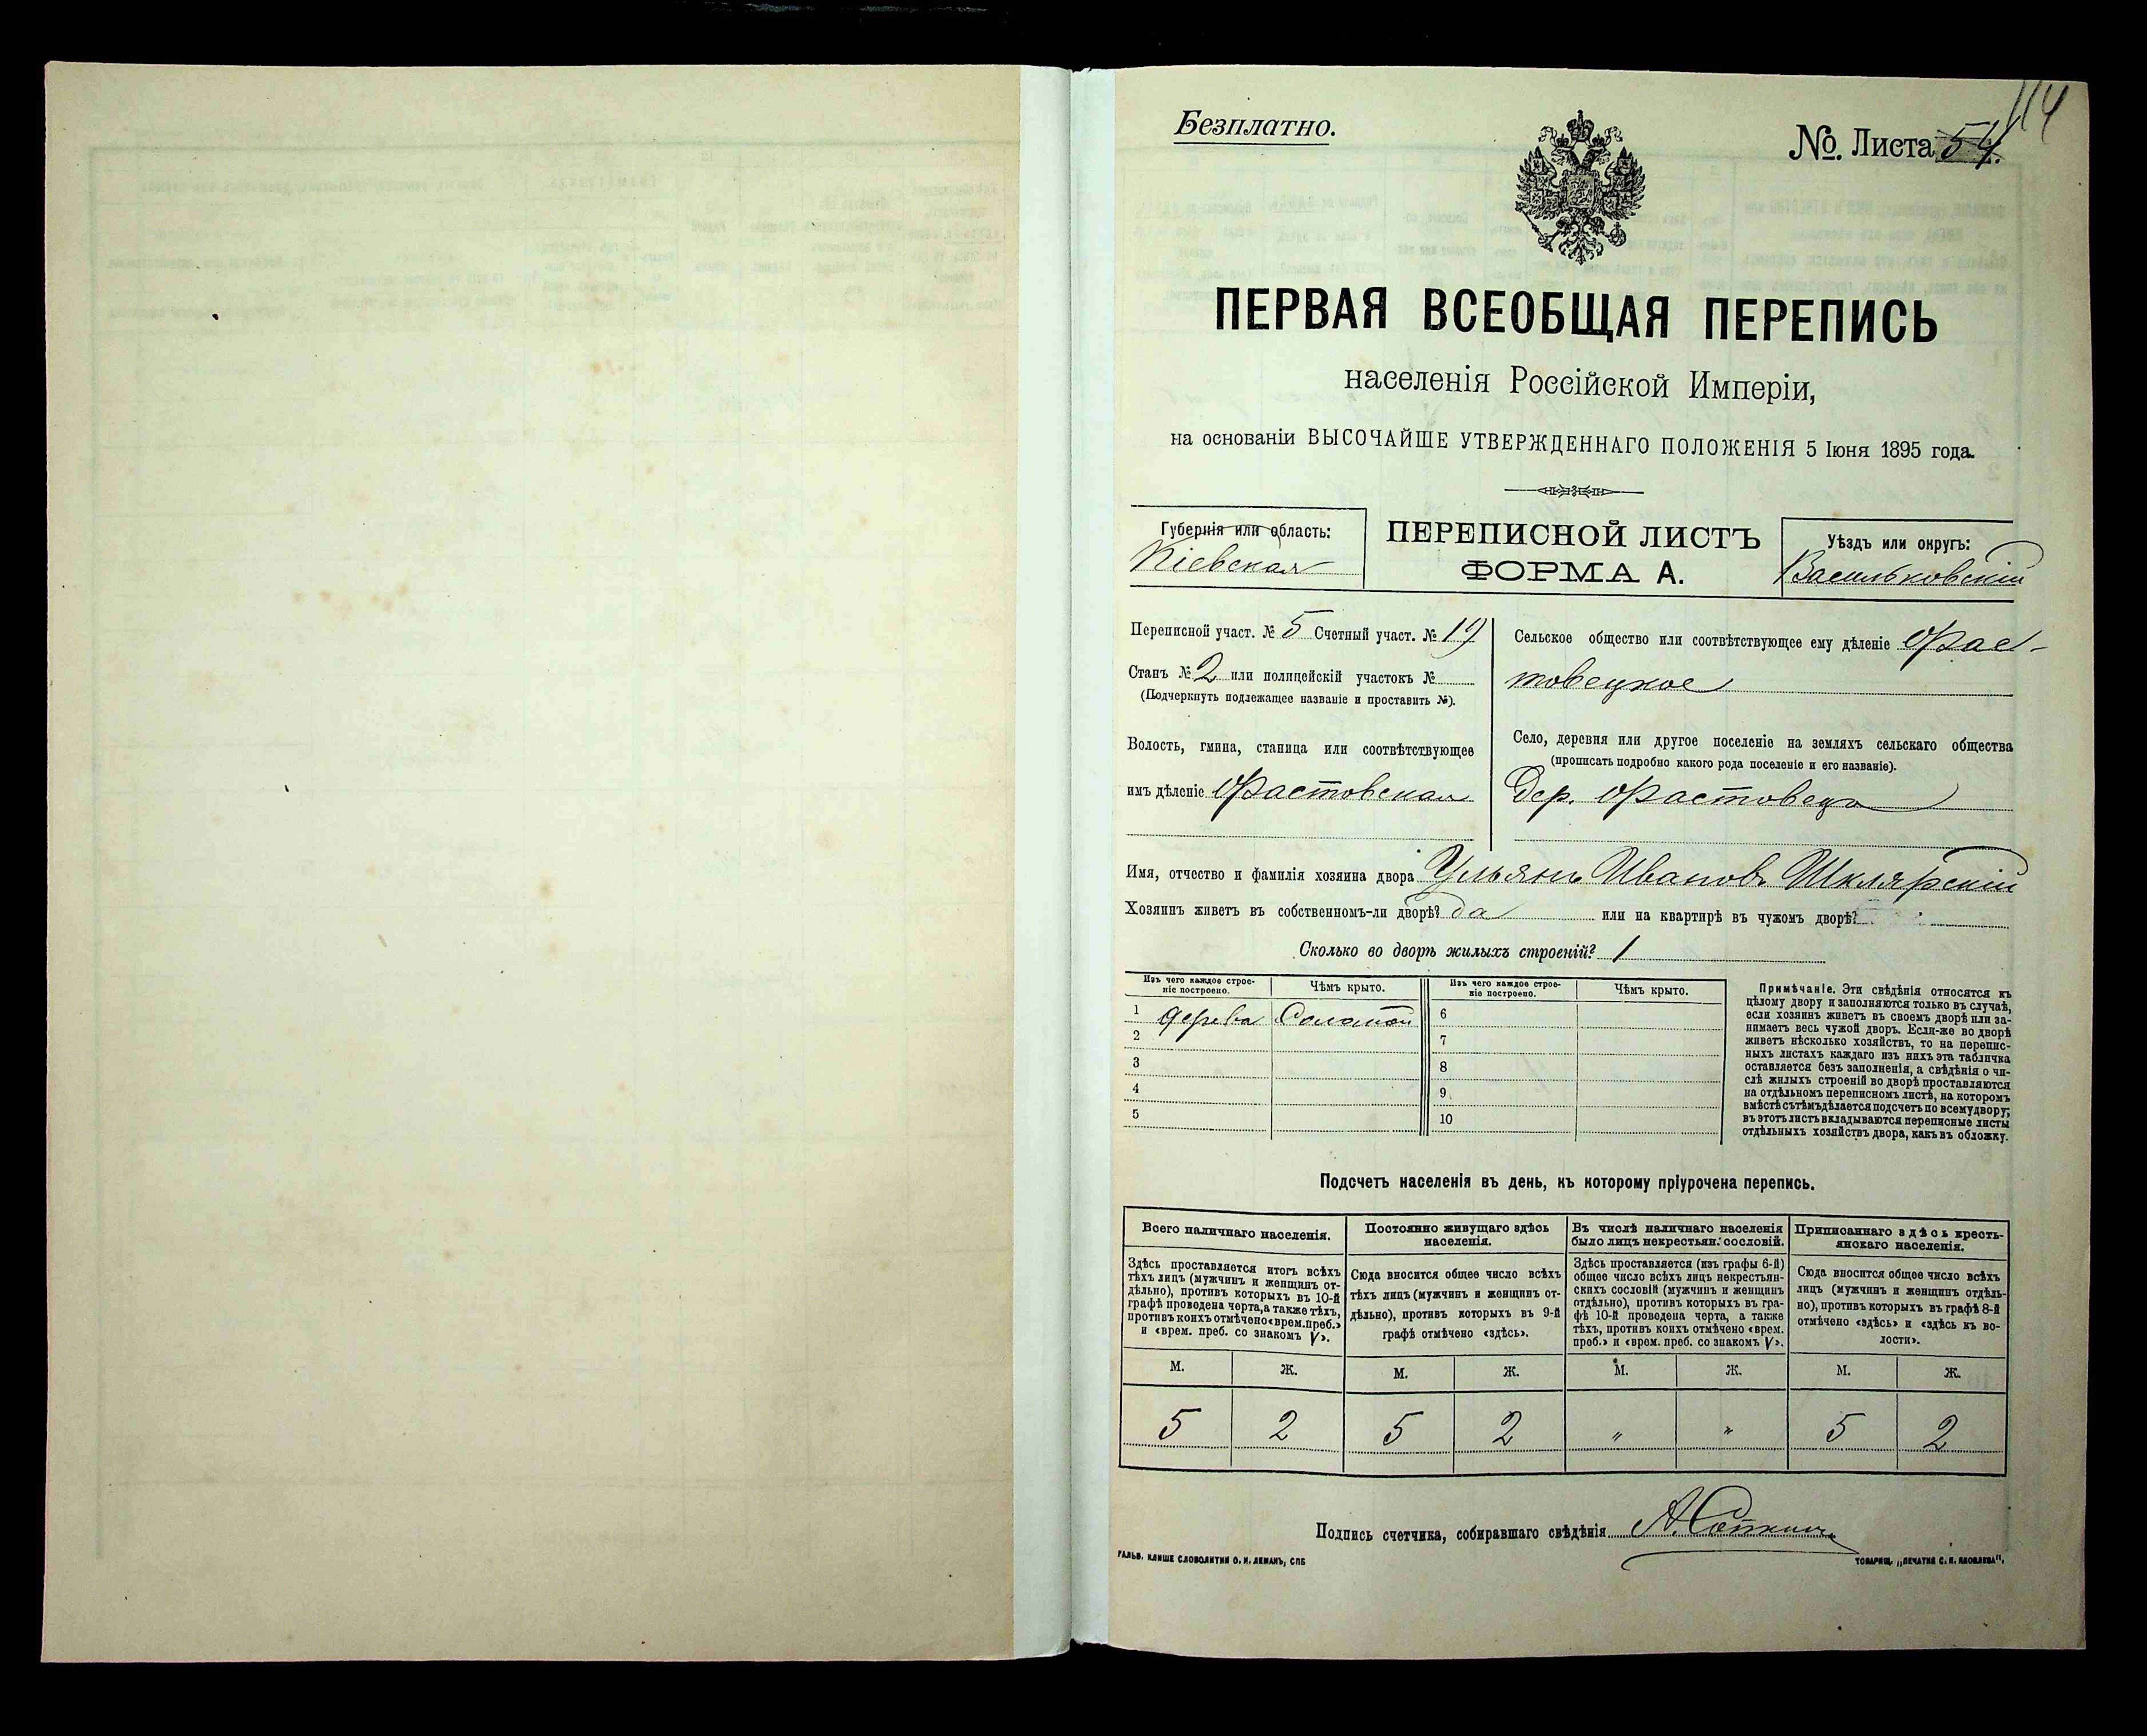 Безплатно.
№. Листа 54.
114
ПЕРВАЯ ВСЕОБЩАЯ ПЕРЕПИСЬ
населенія Россійской Имперіи,
на основаніи ВЫСОЧАЙШЕ УТВЕРЖДЕННАГО ПОЛОЖЕНІЯ 5 Іюня 1895 года.
Губернія или область:
Кіевская
ПЕРЕПИСНОЙ ЛИСТЪ
ФОРМА А.
Уѣздъ или округъ:
Васильковскій
Переписной участ. № 5 Счетный участ. № 19
Станъ № 2 или полицейскій участокъ №
(Подчеркнуть подлежащее названіе и проставить №).
Волость, гмина, станица или соотвѣтствующее
имъ дѣленіе Фастовская
Сельское общество или соотвѣтствующее ему дѣленіе Фас-
товецкое
Село, деревня или другое поселеніе на земляхъ сельскаго общества
(прописать подробно какого рода поселеніе и его названіе).
Дер. Фастовецъ
Имя, отчество и фамилія хозяина двора Ульянъ Ивановъ Шклярскій
Хозяинъ живетъ въ собственномъ-ли дворѣ? да или на квартирѣ въ чужомъ дворѣ?
Сколько во дворѣ жилыхъ строеній? 1
Изъ чего каждое строе-
ніе построено.
Чѣмъ крыто.
Изъ чего каждое строе-
ніе построено.
Чѣмъ крыто.
1 дерева Соломой 6
2 7
3 8
4 9
5 10
Примѣчаніе. Эти свѣдѣнія относятся къ
цѣлому двору и заполняются только въ случаѣ,
если хозяинъ живетъ въ своемъ дворѣ или за-
нимаетъ весь чужой дворъ. Если-же во дворѣ
живетъ нѣсколько хозяйствъ, то на перепис-
ныхъ листахъ каждаго изъ нихъ эта табличка
оставляется безъ заполненія, а свѣдѣнія о чи-
слѣ жилыхъ строеній во дворѣ проставляются
на отдѣльномъ переписномъ листѣ, на которомъ
вмѣстѣ съ тѣмъ дѣлается подсчетъ по всему двору;
въ этотъ листъ вкладываются переписные листы
отдѣльныхъ хозяйствъ двора, какъ въ обложку.
Подсчетъ населенія въ день, къ которому пріурочена перепись.
Всего наличнаго населенія.
Здѣсь проставляется итогъ всѣхъ
тѣхъ лицъ (мужчинъ и женщинъ от-
дѣльно), противъ которыхъ въ 10-й
графѣ проведена черта, а также тѣхъ,
противъ коихъ отмѣчено «врем. преб.»
и «врем. преб. со знакомъ V».
Постоянно живущаго здѣсь
населенія.
Сюда вносится общее число всѣхъ
тѣхъ лицъ (мужчинъ и женщинъ от-
дѣльно), противъ которыхъ въ 9-й
графѣ отмѣчено «здѣсь».
Въ числѣ наличнаго населенія
было лицъ некрестьян. сословій.
Здѣсь проставляется (изъ графы 6-й)
общее число всѣхъ лицъ некрестьян-
скихъ сословій (мужчинъ и женщинъ
отдѣльно), противъ которыхъ въ гра-
фѣ 10-й проведена черта, а также
тѣхъ, противъ коихъ отмѣчено «врем.
преб.» и «врем. преб. со знакомъ V».
Приписаннаго здѣсь кресть-
янскаго населенія.
Сюда вносится общее число всѣхъ
лицъ (мужчинъ и женщинъ отдѣль-
но), противъ которыхъ въ графѣ 8-й
отмѣчено «здѣсь» и «здѣсь въ во-
лости».
М. Ж. М. Ж. М. Ж. М. Ж.
5 2 5 2 „ „ 5 2
Подпись счетчика, собиравшаго свѣдѣнія
ГАЛЬВ. КЛИШЕ СЛОВОЛИТНИ О. И. ЛЕМАНЪ, СПБ
ТОВАРИЩ. „ПЕЧАТНЯ С. П. ЯКОВЛЕВА“.